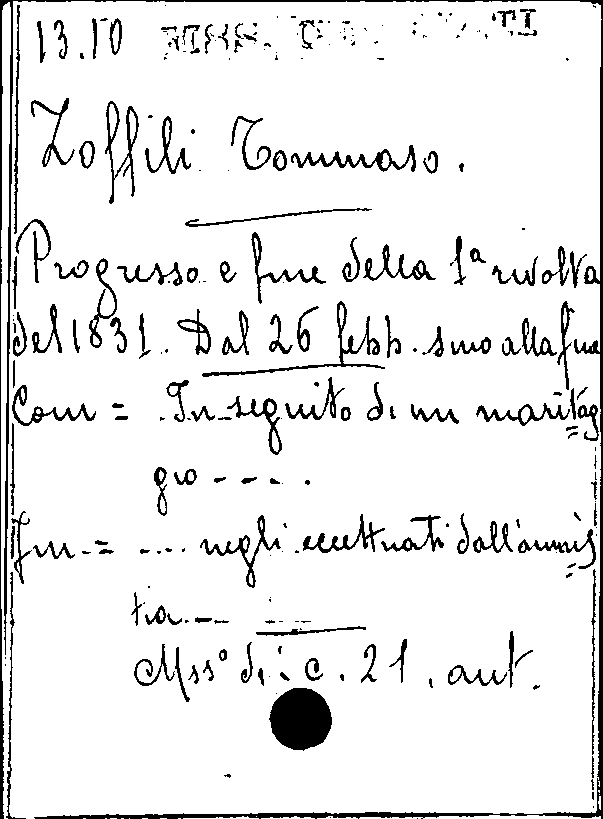 13.10 MSS.
Zoffili Tommaso.
Progresso e fine della 1ª rivolta
del 1831. Dal 26 febb. sino alla fine
Com = In seguito di un maritag
gio - - - - .
Fin. = .... negli eccettuati dall'amnis
tia. - -
Mssº di c. 21. aut.